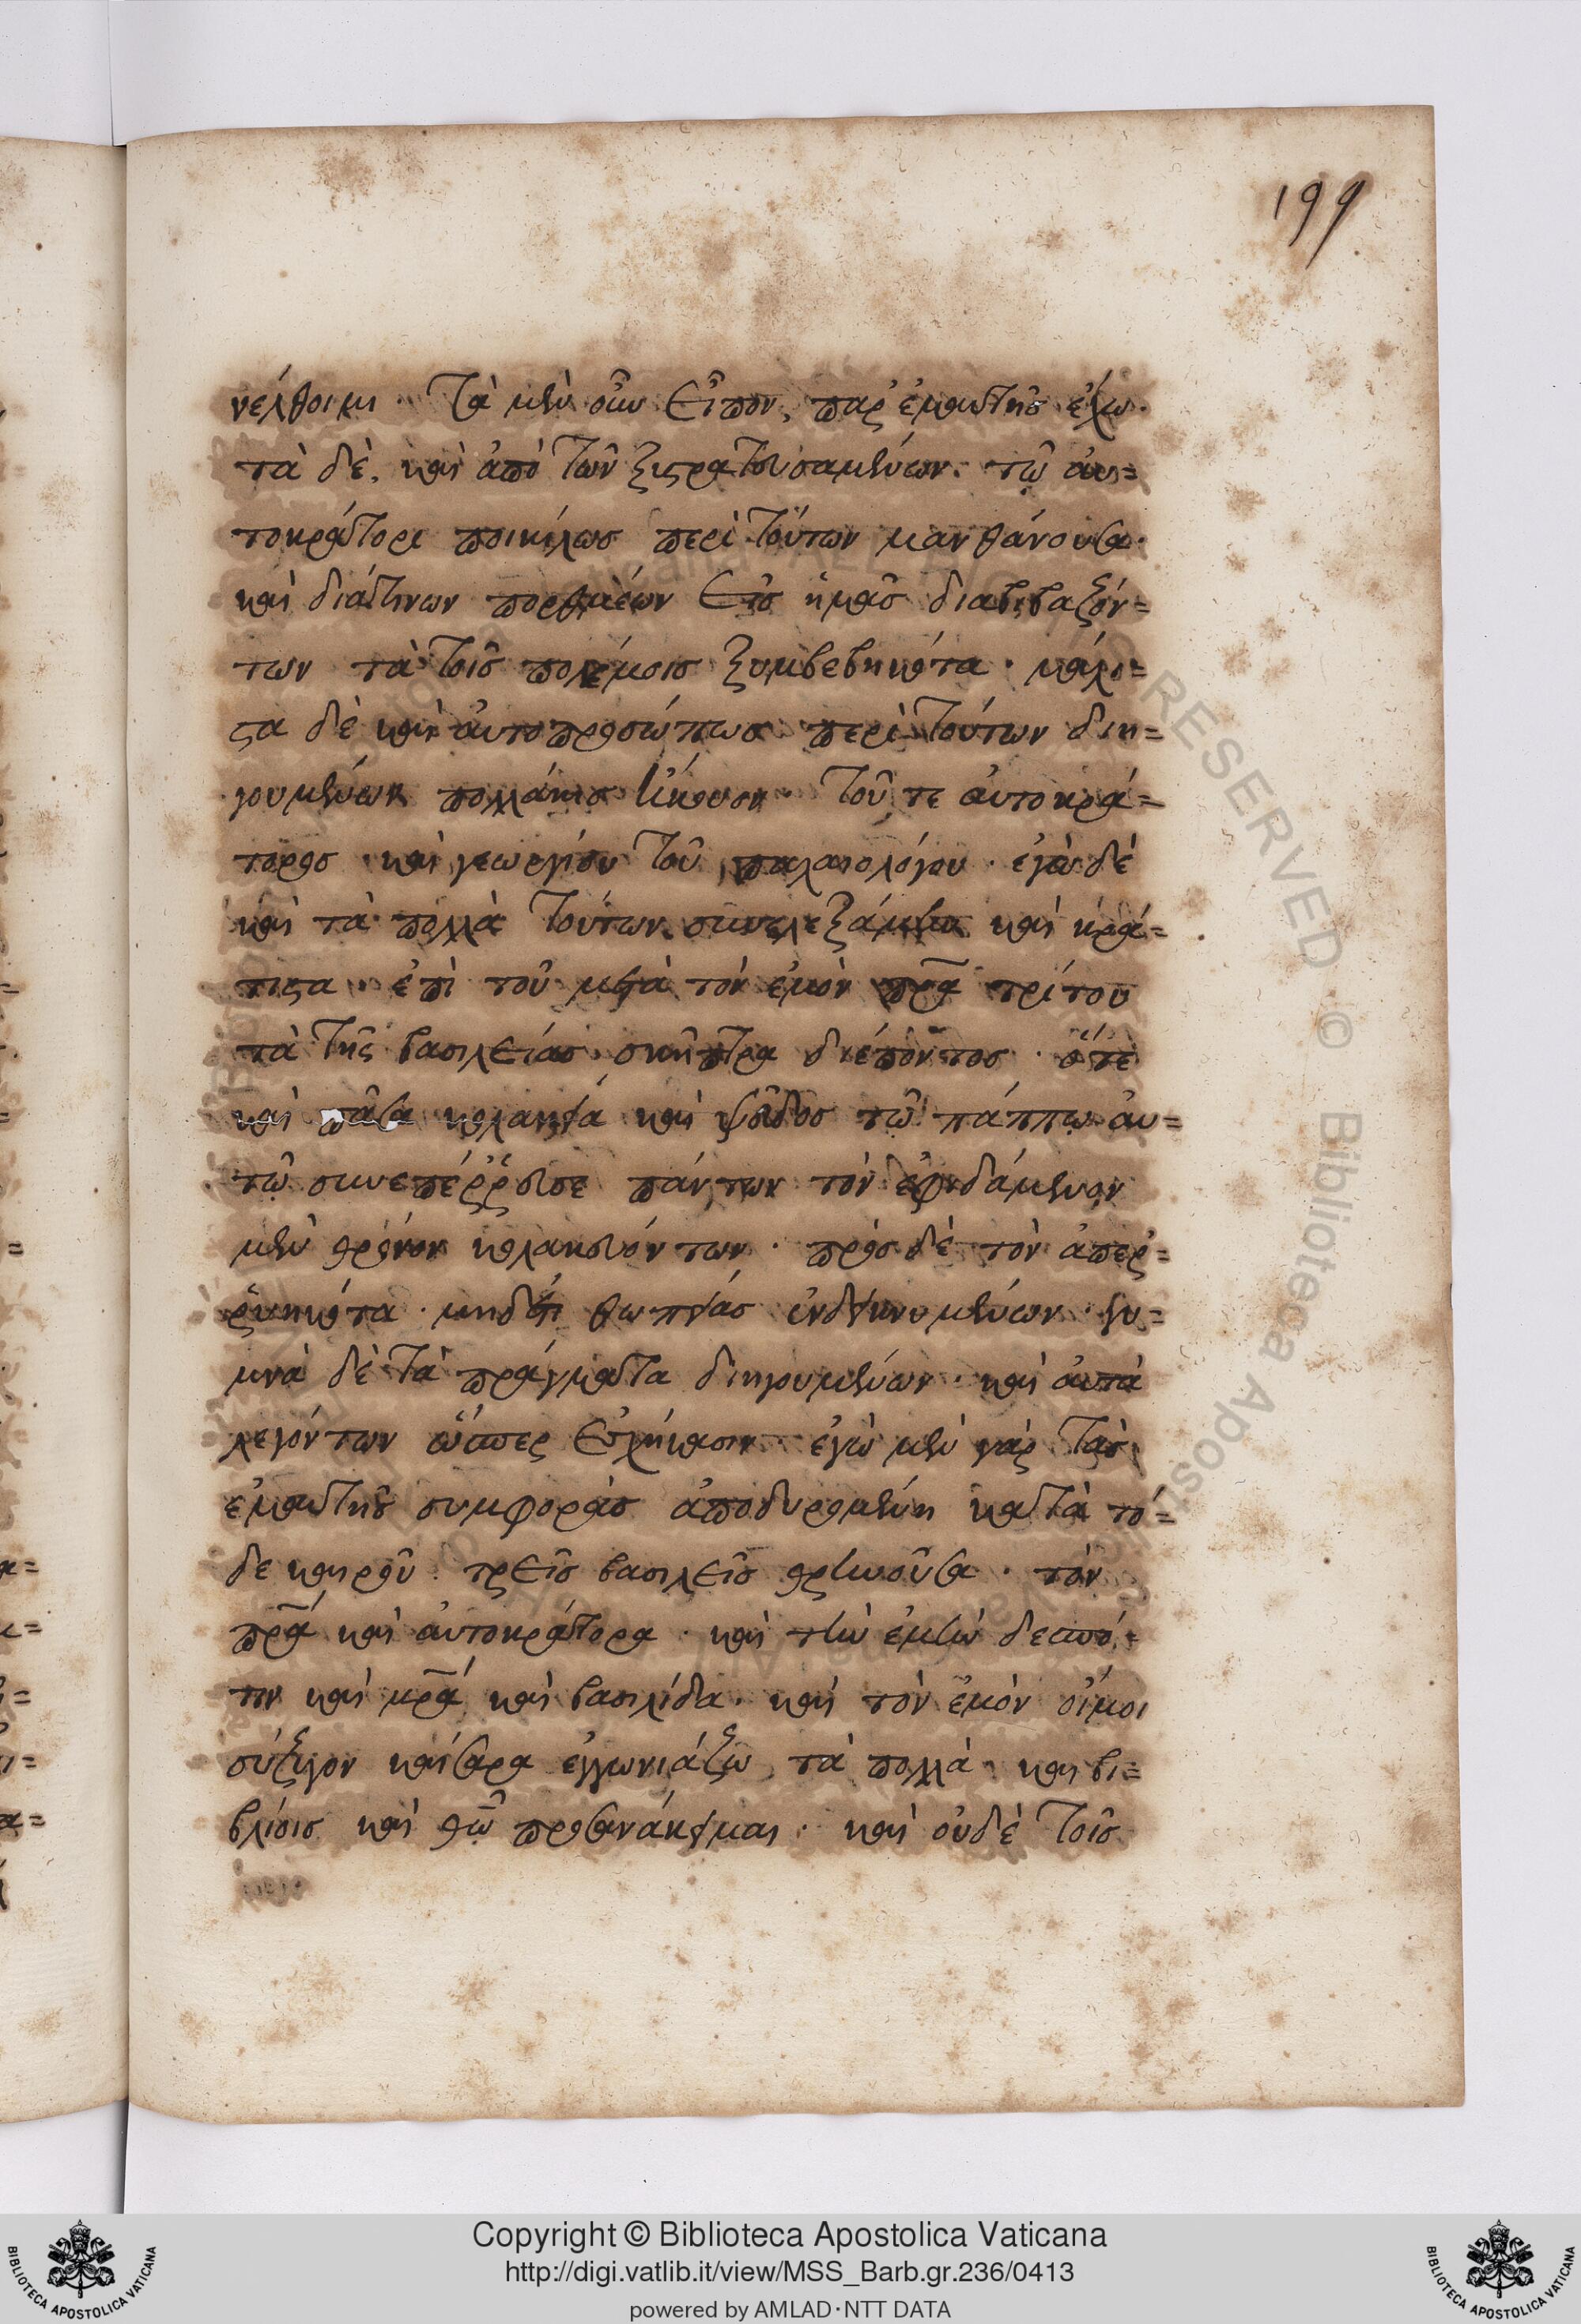 199
νέλθοιμι· Τὰ μὲν οὖν εἶπον, παρ' ἐμαυτῆς ἔχω·
τὰ δὲ, καὶ ἀπὸ τῶν ξυστρατευσαμένων τῷ αὐ=
τοκράτορι ποικίλως περὶ τούτων μανθάνουσα·
καὶ διάτινων πορθμέων εἰς ἡμᾶς διαβιβαζόν=
των τὰ τοῖς πολέμοις ξυμβεβηκότα· μάλι=
στα δὲ καὶ αὐτοπροσώπως περὶ τούτων διη=
γουμένων πολλάκις ἤκουον· τοῦ τε αὐτοκρά=
τορος καὶ γεωργίου τοῦ παλαιολόγου· ἐγὼ δὲ
καὶ τὰ πολλὰ τούτων συνελεξάμην καὶ κρά=
τιστα· ἐπὶ τοῦ μετὰ τὸν ἐμὸν πρα τρίτου
τὰ τῆς βασιλείας σκῆπτρα διέποντος· ὅτε
καὶ πᾶσα κολακεία καὶ ψεῦδος τῷ πάππῳ αὐ=
τῷ συνεπέρρευσε πάντων τὸν ἐφιζάμενον
μὲν θρόνον κολακευόντων· πρὸς δὲ τὸν ἀπερ=
ρυηκότα· μηδὲν θωπείας ἐνδεικνυμένων· γυ=
μνὰ δὲ τὰ πράγματα διηγουμένων· καὶ αὐτὰ
λεγόντων ὥσπερ ἐσχήκασιν ἐγὼ μὲν γὰρ τὰς
ἐμαυτῆς συμφορὰς ἀποδυρομένη κατὰ τό=
δε καιροῦ· τρεῖς βασιλεῖς θρηνοῦσα· τὸν
πρα καὶ αὐτοκράτορα· καὶ τὴν ἐμὴν δεσπό=
τιν καὶ μρα καὶ βασιλίδα· καὶ τὸν ἐμὸν οἴμοι
σύζυγον καίσαρα ἐγγωνιάζω τὰ πολλὰ· καὶ βι=
βλίοις καὶ θῷ προσανάκειμαι· καὶ οὐδὲ τοῖς
Copyright © Biblioteca Apostolica Vaticana
http://digi.vatlib.it/view/MSS_Barb.gr.236/0413
powered by AMLAD·NTT DATA
BIBLIOTECA APOSTOLICA VATICANA
BIBLIOTECA APOSTOLICA VATICANA